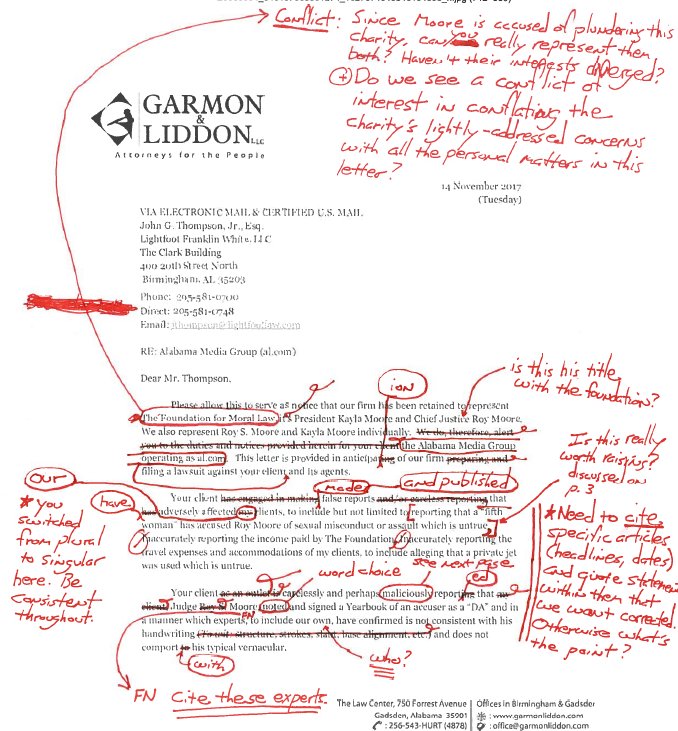 Conflict: Since Moore is accused of plundering this
charity, can you really represent them
both? Haven't their interests diverged?
+ Do we see a conflict of
interest in conflating the
charity's lightly-addressed concerns
with all the personal matters in this
letter?
GARMON
&
LIDDON LLC
Attorneys for the People
14 November 2017
(Tuesday)
VIA ELECTRONIC MAIL & CERTIFIED U.S. MAIL
John G. Thompson, Jr., Esq.
Lightfoot Franklin White, LLC
The Clark Building
400 20th Street North
Birmingham, AL 35203
Phone: 205-581-0700
Direct: 205-581-0748
Email: jthompson@lightfootlaw.com
RE: Alabama Media Group (al.com)
Dear Mr. Thompson,
ion
is this his title
with the foundation?
Please allow this to serve as notice that our firm has been retained to represent
The Foundation for Moral Law, it's President Kayla Moore and Chief Justice Roy Moore.
We also represent Roy S. Moore and Kayla Moore individually. We do, therefore, alert
you to the duties and notices provided herein for your client the Alabama Media Group
operating as al.com. This letter is provided in anticipating of our firm preparing and
filing a lawsuit against your client and its agents.
Is this really
worth raising?
discussed on
p. 3
our
* you
switched
from plural
to singular
here. Be
consistent
throughout.
have
made
and published
Your client has engaged in making false reports and/or careless reporting that
had adversely affected my clients, to include but not limited to reporting that a "fifth
woman" has accused Roy Moore of sexual misconduct or assault which is untrue,
inaccurately reporting the income paid by The Foundation, inaccurately reporting the
travel expenses and accommodations of my clients, to include alleging that a private jet
was used which is untrue.
* Need to cite
specific articles
(headlines, dates)
and quote statements
within them that
we want corrected.
Otherwise what's
the point?
word choice
see next page
ed
Your client as an outlet is carelessly and perhaps maliciously reporting that my
client, Judge Roy S. Moore, noted and signed a Yearbook of an accuser as a "DA" and in
a manner which experts, to include our own, have confirmed is not consistent with his
handwriting (To wit: structure, strokes, slant, base alignment, etc.) and does not
comport to his typical vernacular.
FN
with
who?
FN Cite these experts.
The Law Center, 750 Forrest Avenue
Gadsden, Alabama 35901
: 256-543-HURT (4878)
Offices in Birmingham & Gadsden
: www.garmonliddon.com
: office@garmonliddon.com